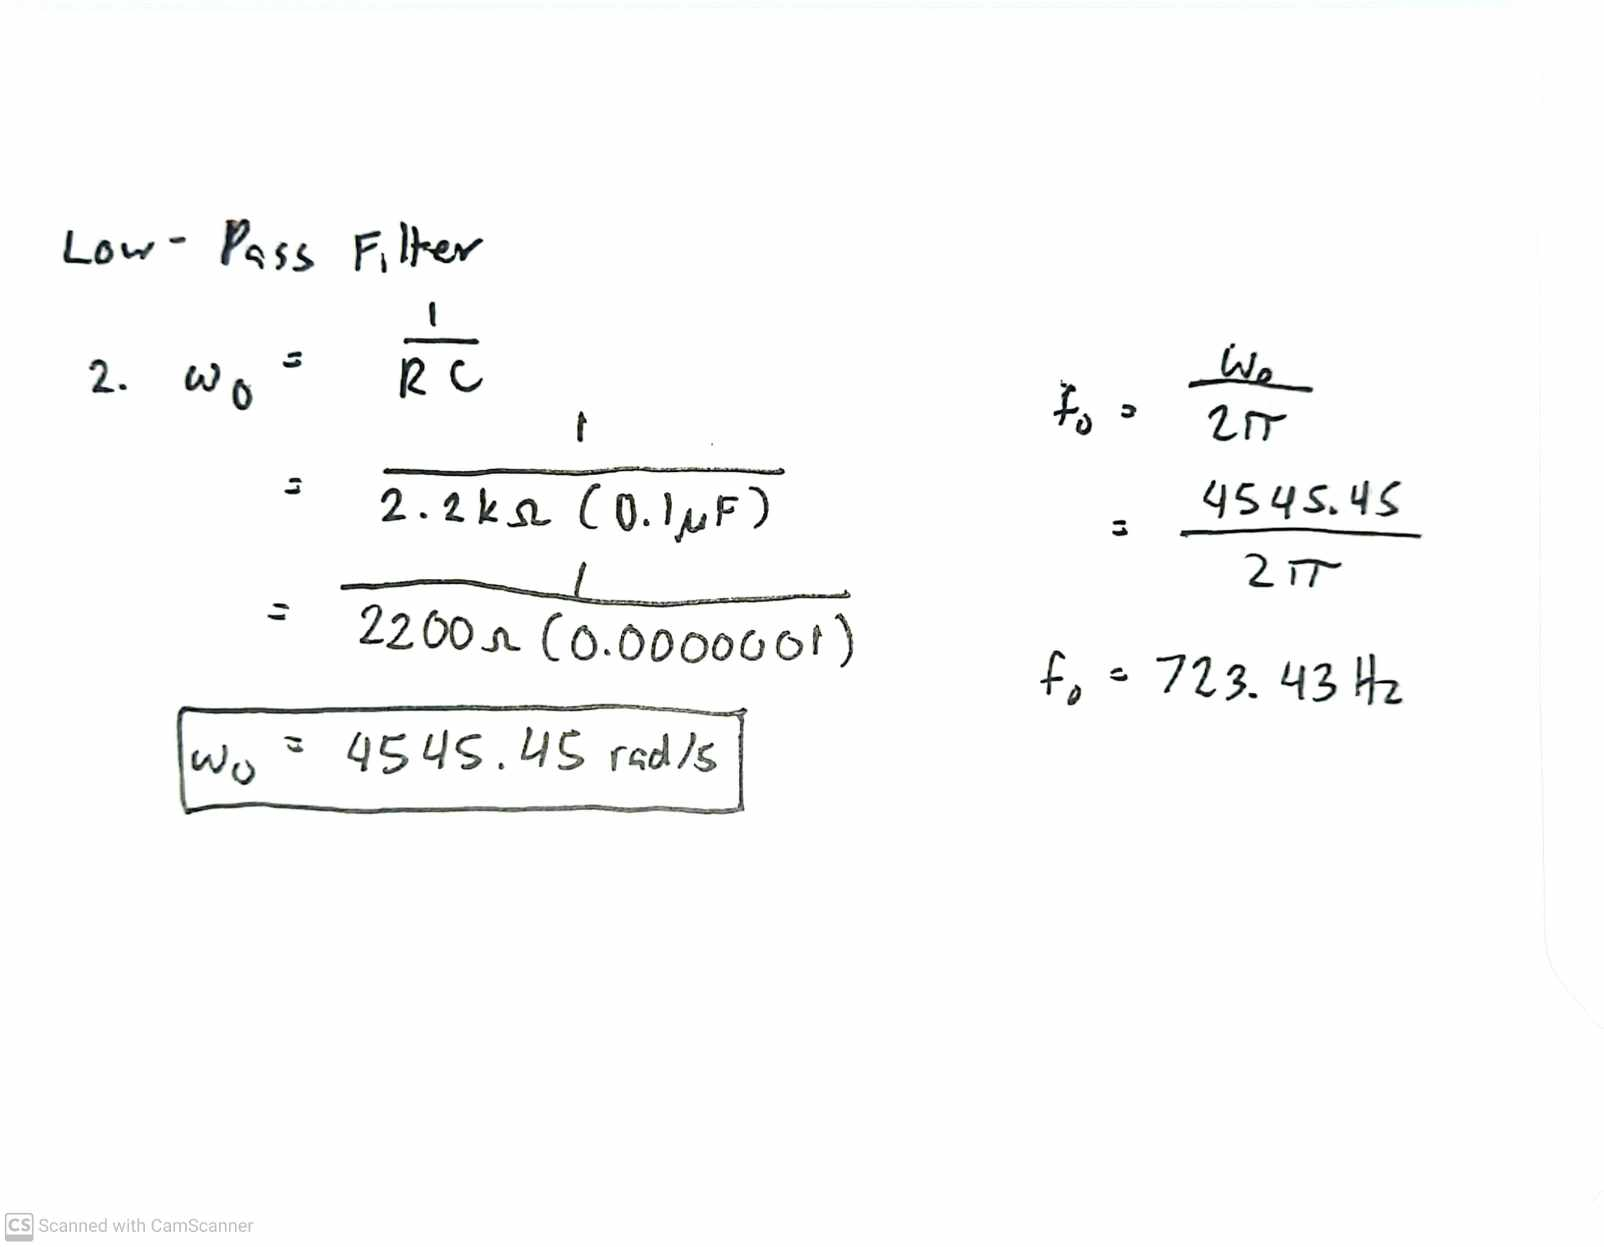 Low-Pass Filter
2. ω₀ = 1 / RC
= 1 / 2.2kΩ (0.1μF)
= 1 / 2200Ω (0.0000001)
ω₀ = 4545.45 rad/s
f₀ = ω₀ / 2π
= 4545.45 / 2π
f₀ = 723.43 Hz
CS Scanned with CamScanner